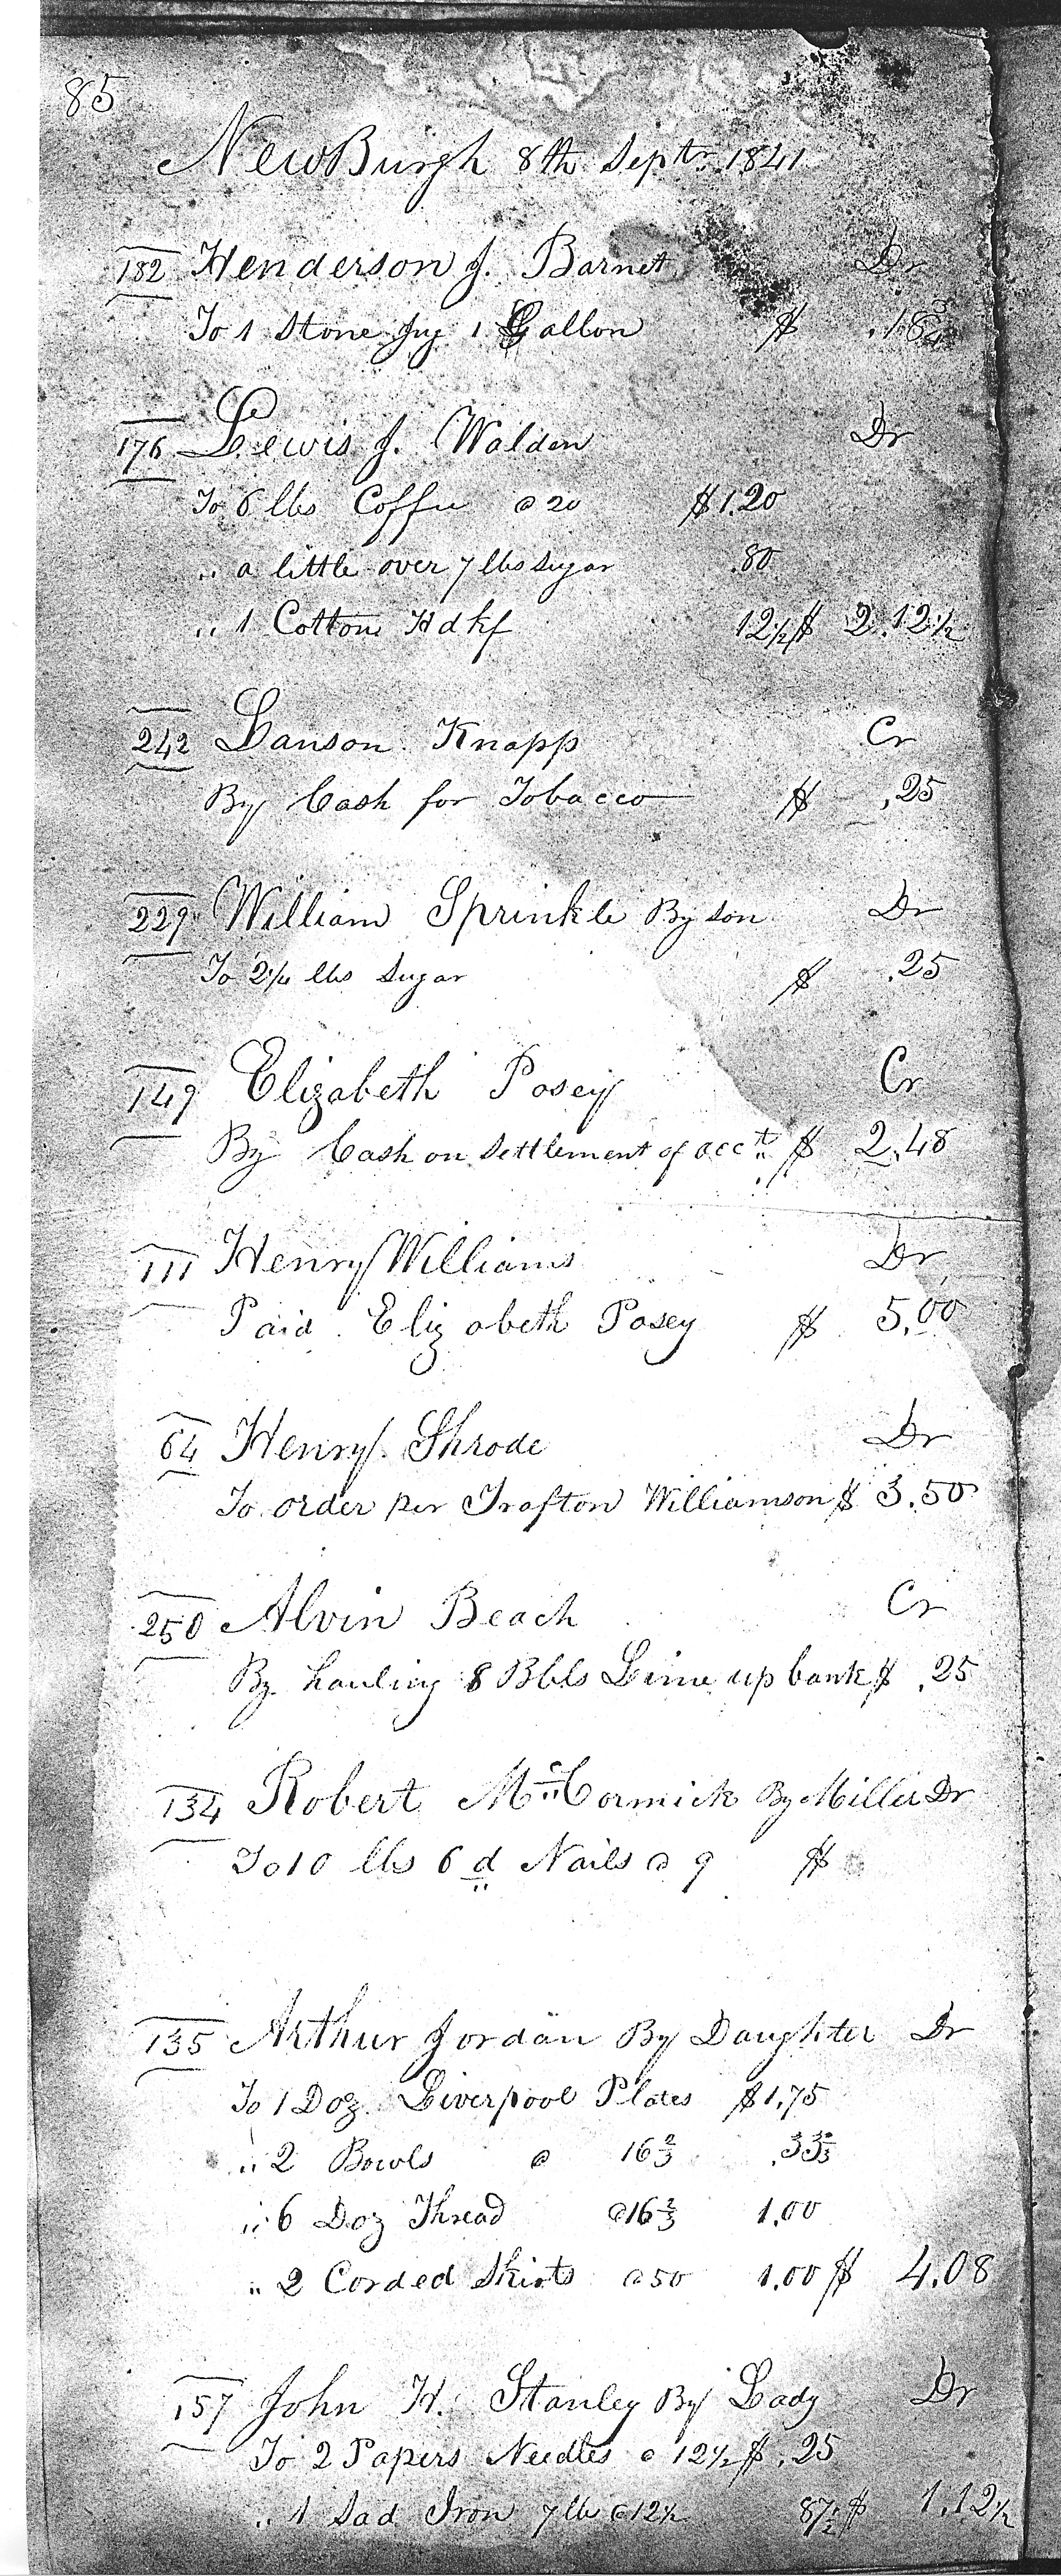 85
NewBurgh 8th Septr. 1841
182 Henderson J. Barnet Dr
To 1 Stone Jug 1 Gallon $ .18¾
176 Lewis J. Walden Dr
To 6 lbs Coffee @ 20 $1.20
" a little over 7 lbs Sugar .80
" 1 Cotton Hdkf 12½ $ 2.12½
242 Lanson Knapp Cr
By Cash for Tobacco $ .25
229 William Sprinkle By son Dr
To 2¼ lbs Sugar $ .25
149 Elizabeth Posey Cr
By Cash on Settlement of acct $ 2.48
111 Henry Williams Dr
Paid Elizabeth Posey $ 5.00
64 Henry Shrode Dr
To order per Trafton Williamson $ 3.50
250 Alvin Beach Cr
By hauling 8 Bbls Lime up bank $ .25
134 Robert McCormick By Miller Dr
To 10 lbs 6d Nails @ 9 $
135 Arthur Jordan By Daughter Dr
To 1 Doz. Liverpool Plates $1.75
" 2 Bowls @ 16⅔ .33⅓
" 6 Doz Thread @16⅔ 1.00
" 2 Corded Skirts @ 50 1.00 $ 4.08
157 John H. Stanley By Lady Dr
To 2 Papers Needles @ 12½ $ .25
" 1 Sad Iron 7 lb @ 12½ 87½ $ 1.12½